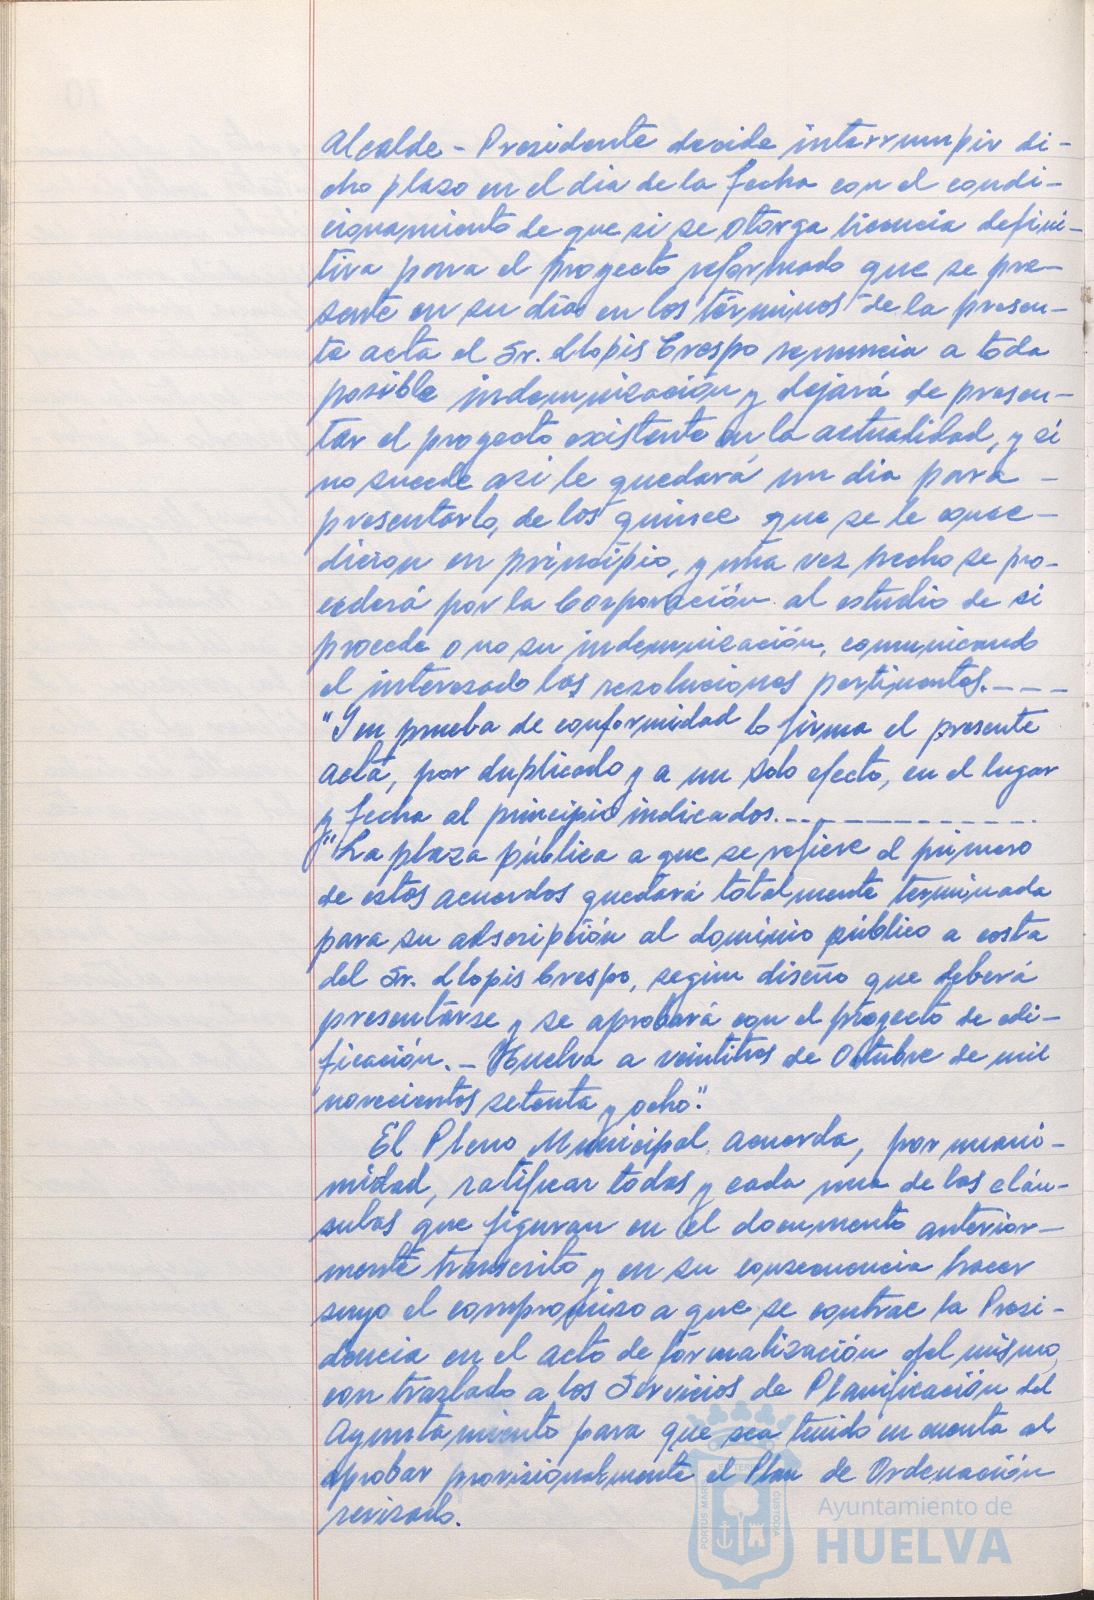 Alcalde - Presidente decide interrumpir di-
cho plazo en el dia de la fecha con el condi-
cionamiento de que si se otorga licencia defini-
tiva para el proyecto reformado que se pre-
sente en su dia en los términos de la presen-
te acta el Sr. Llopis Crespo renuncia a toda
posible indemnización y dejará de presen-
tar el proyecto existente en la actualidad, y si
no sucede asi le quedará un dia para -
presentarlo, de los quince que se le conce-
dieron en principio, y una vez hecho se pro-
cederá por la Corporación al estudio de si
procede o no su indemnización, comunicando
al interesado las resoluciones pertinentes.----
"Y en prueba de conformidad lo firma el presente
acta, por duplicado y a un solo efecto, en el lugar
y fecha al principio indicados.------------
"La plaza pública a que se refiere el primero
de estos acuerdos quedará totalmente terminada
para su adscripción al dominio público a costa
del Sr. Llopis Crespo, según diseño que deberá
presentarse y se aprobará con el proyecto de edi-
ficación.- Huelva a veintitres de Octubre de mil
novecientos setenta y ocho".
El Pleno Municipal acuerda, por unani-
midad, ratificar todas y cada una de las cláu-
sulas que figuran en el documento anterior-
mente transcrito y en su consecuencia hacer
suyo el compromiso a que se contrae la Presi-
dencia en el acto de formalización del mismo,
con traslado a los Servicios de Planificación del
Ayuntamiento para que sea tenido en cuenta al
aprobar provisionalmente el Plan de Ordenación
revisado.
PORTUS MARIS
CUSTODIA
Ayuntamiento de
HUELVA